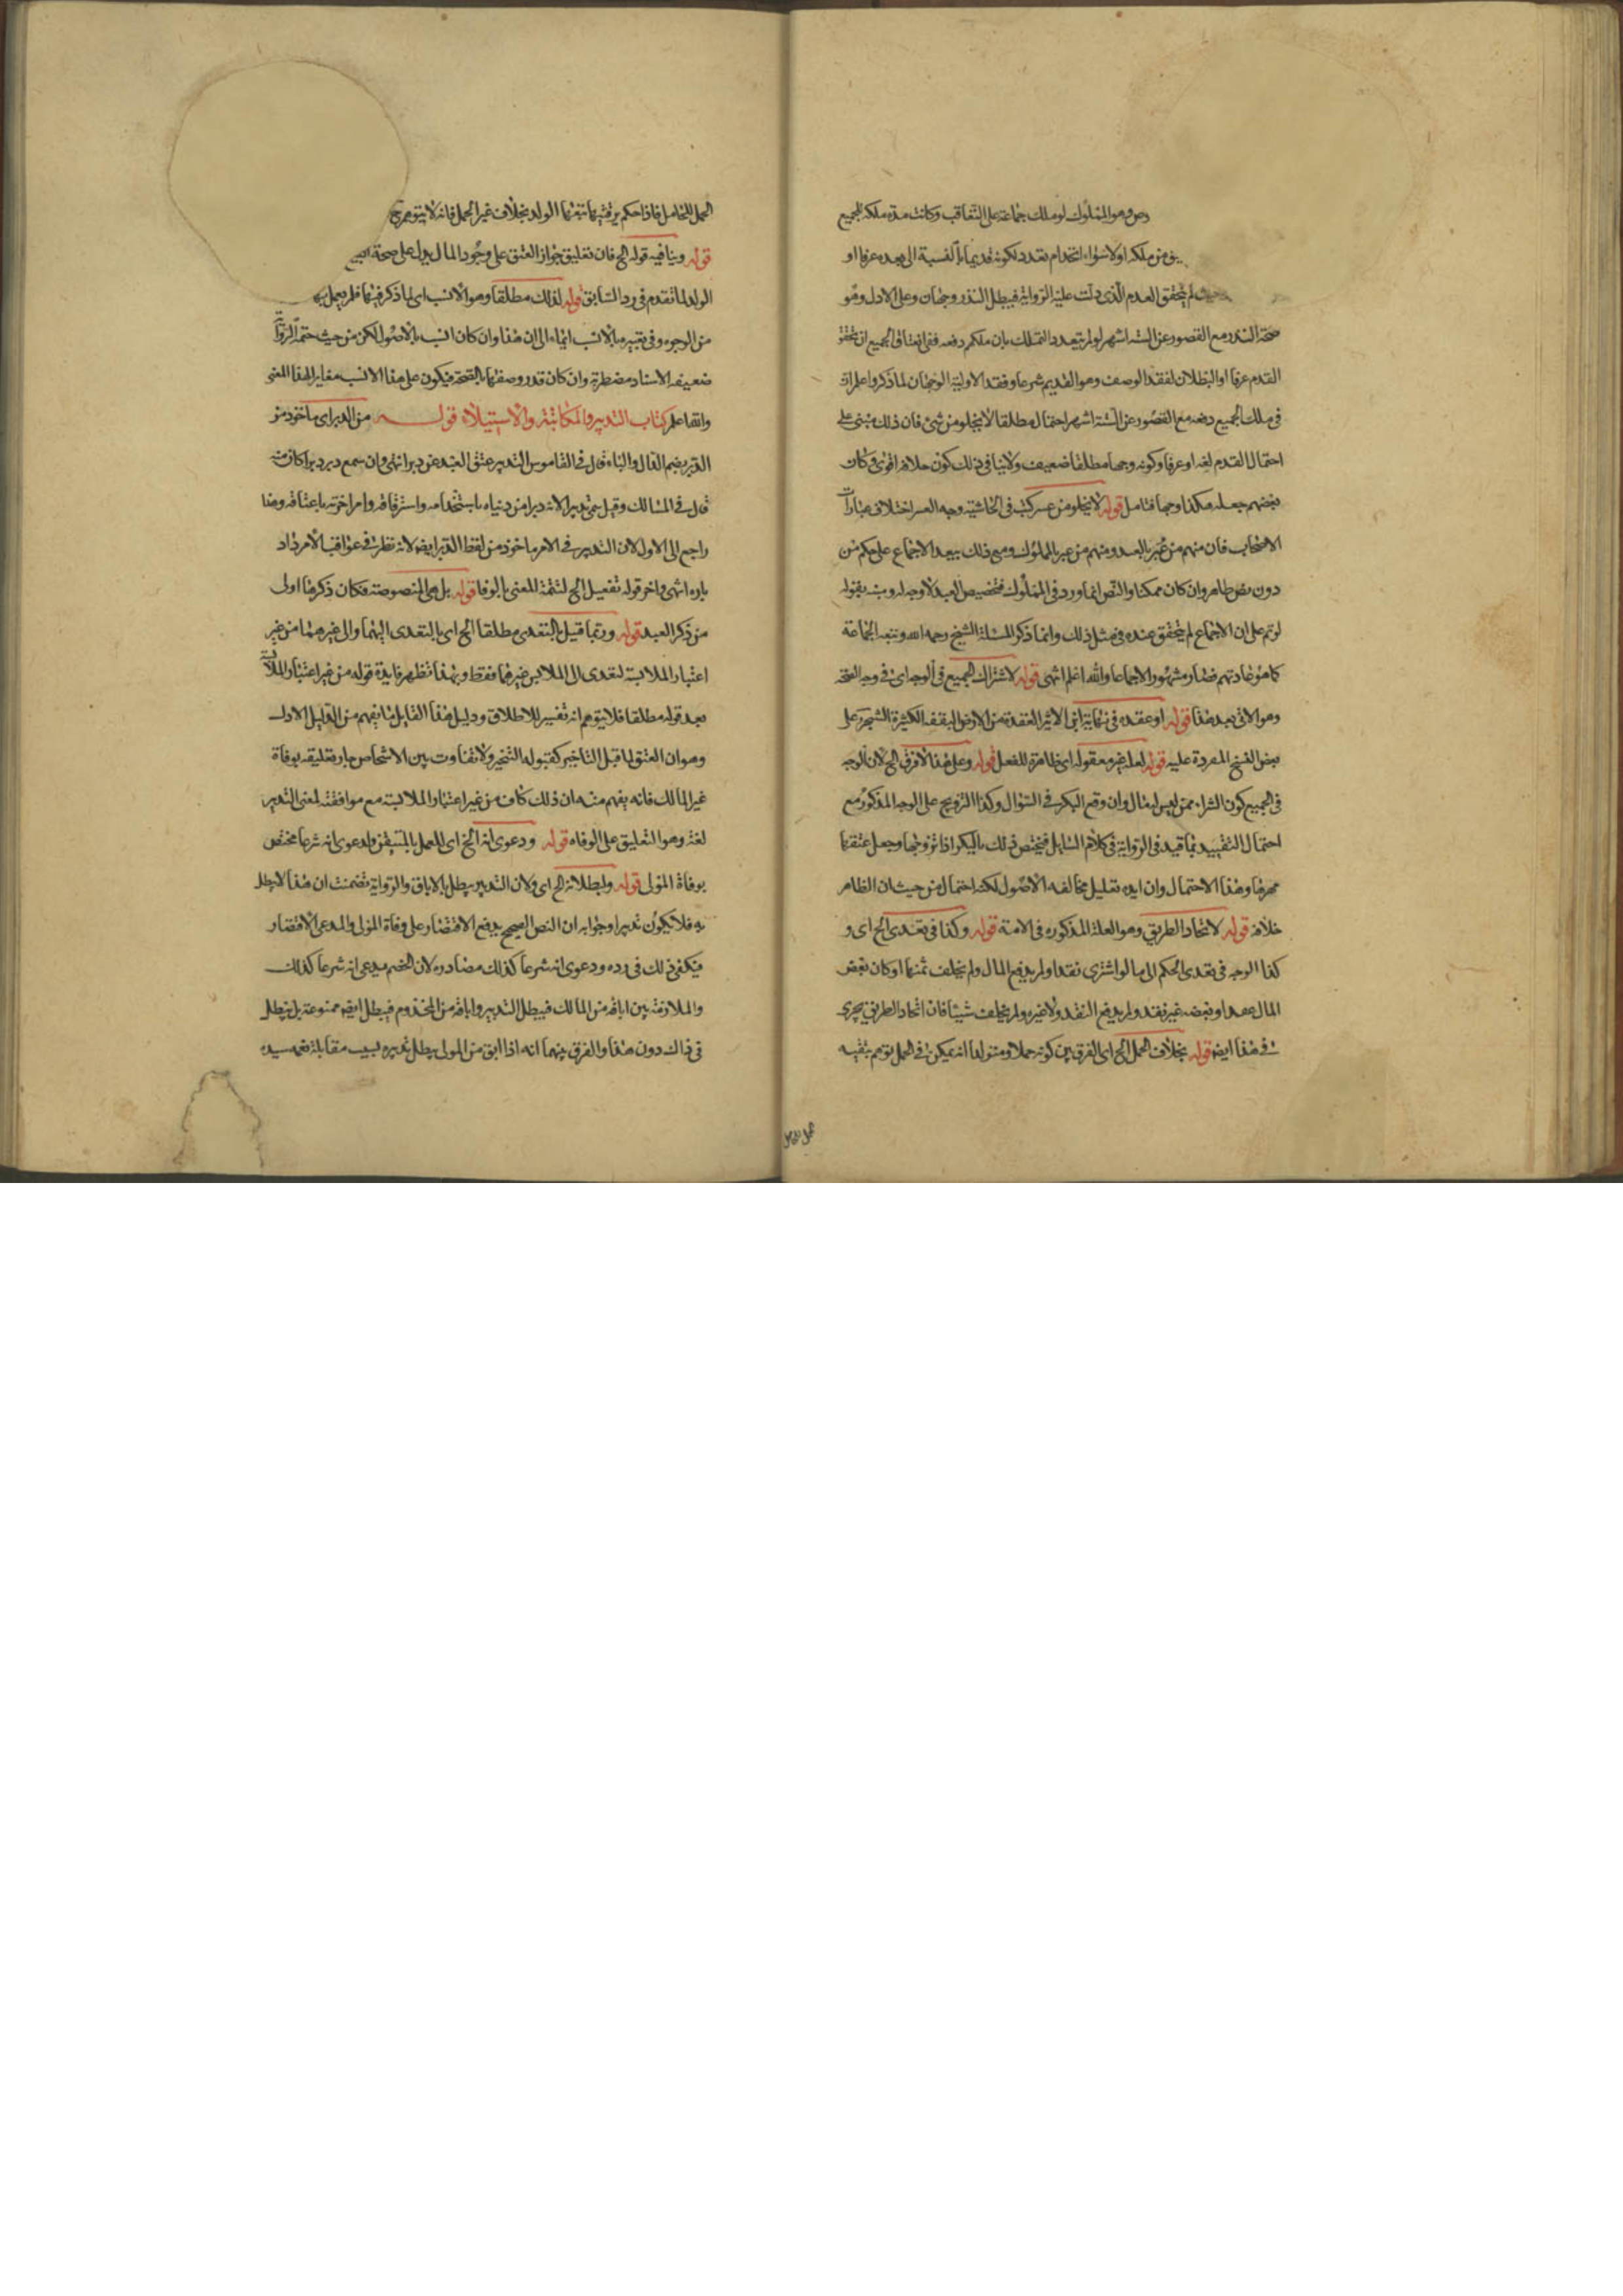 وهو المملوك لو ملك جماعة على التعاقب وكانت مدة ملكه للجميع
من ملكه اولا سواء تعدد لكونه قديما بالنسبة الى بعده عرفا او
لم يتحقق القدم الذى دلت عليه الرواية فيبطل النذر وجهان وعلى الاول وهو
صحة النذر مع القصور عن الستة اشهر لو لم يتعدد التملك بان ملكهم دفعة ففى انعتاق الجميع ان تحقق
القدم عرفا او البطلان لفقد الوصف وهو القديم شرعا وفقد الاولية الوجهان لما ذكروا علم ان
فى ملك الجميع دفعة مع القصور عن الستة اشهر احتمال مطلقا لا يخلو من شئ فان ذلك مبنى على
احتمال القدم لغة او عرفا وكونه وجها مطلقا ضعيف ولا ينافى ذلك كون خلافه اقوى وكان
بعضهم جعله هكذا وجها فتامل قوله لا يخلو من عسر كتب فى الحاشية وجه العسر اختلاف عبارات
الاصحاب فان منهم من عبر بالعبد ومنهم من عبر بالمملوك ومع ذلك يبعد الاجماع على حكم من
دون نص ظاهر وان كان ممكنا والنص انما ورد فى المملوك فتخصيص العبد لا وجه له ونبه بقوله
لو تم على ان الاجماع لم يتحقق عنده فى مثل ذلك وانما ذكر المسئلة الشيخ رحمه الله وتبعه الجماعة
كما هو عادتهم فصار مشهورا لاجماعا والله اعلم انتهى قوله لاشتراك الجميع فى الوجه اى فى وجه الصحة
وهو الاتى بعد هذا قوله او عقده فى نهاية ابن الاثير العقدة من الارض البقعة الكثيرة الشجر على
بعض النسخ المفردة عليه قوله لعله غير معقوله اى ظاهرة للفعل قوله وعلى هذا لا فرق الخ لان الوجه
فى الجميع كون الشراء ممن ليس له مال وان وقع البكر فى السؤال وكذا التزويج على الوجه المذكور مع
احتمال التقييد بما قيد فى الرواية فى كلام السائل فيختص ذلك بالبكر اذا تزوجها وجعل عتقها
مهرها وهذا الاحتمال وان ايده تعليل مخالفه الاصول لكنه احتمال من حيث ان الظاهر
خلافه قوله لاتحاد الطريق وهو العلة المذكوره فى الامة قوله وكذا فى تعدى الخ اى و
كذا الوجه فى تعدى الحكم الى ما لو اشترى نقدا ولم يدفع المال ولم يخلف ثمنها او كان بعض
المال نقدا وبعضه غير نقد ولم يدفع النقد ولا غيره ولم يخلف شيئا فان اتحاد الطريق يجرى
فى هذا ايضا قوله بخلاف الحمل الخ اى الفرق بين كونه حملا ومتولدا انه يمكن فى الحمل توهم تبعية
الحمل للحامل فاذا حكم برقيتها تبعها الولد بخلاف غير الحمل فانه لا يتوهم
قوله وينافيه قوله الخ فان تعليق جواز العتق على وجود المال يدل على صحة البيع
الولد لما تقدم فى رد السابق قوله لذلك مطلقا وهو الانسب اى لما ذكر فيها فلم يعمل بها
من الوجوه وفى تعبيره بالانسب ايماء الى ان هذا وان كان انسب بالاصول لكن من حيث
ضعيفة الاسناد مضطربة وان كان قد وصفها بالصحة فيكون على هذا الانسب مغاير لهذا المعنى
والله اعلم كتاب التدبير والمكاتبة والاستيلاد قوله من الدبر اى ماخوذ من
الدبر بضم الدال والباء قال فى القاموس التدبير عتق العبد عن دبر انتهى وان سمع دبر دبرا كان منه
قال فى المسالك وقيل سمى تدبيرا لانه دبر امر دنياه باستخدامه واسترقاقه وامر اخرته باعتاقه وهذا
راجع الى الاول لان التدبير فى الامر ماخوذ من لفظ الدبر ايضا لانه نظر فى عواقب الامر واد
باره انتهى واخر قوله تفعيل الخ لتتمة المعنى بالوفا قوله بل هى المنصوصة فكان ذكرها اولى
من ذكر العبد قوله وربما قيل بالتعدى مطلقا الخ اى بالتعدى اليهما والى غيرهما من غير
اعتبار الملابسة لتعدى الى الملابس غيرهما فقط وبهذا تظهر فايدة قوله من غير اعتبار الملابسة
بعد قوله مطلقا فلا يتوهم انه تفسير للاطلاق ودليل هذا القايل ما يفهم من التعليل الاول
وهو ان العتق لما قبل التاخير كقبوله التنجيز ولا تفاوت بين الاشخاص جاز تعليقه بوفاة
غير المالك فانه يفهم منه ان ذلك كاف من غير اعتبار الملابسة مع موافقته لمعنى التدبير
لغة وهو التعليق على الوفاه قوله ودعوى انه الخ اى للعمل بالمتيقن ولدعوى انه شرعا مختص
بوفاة المولى قوله ولبطلانه الخ اى ولان التدبير يبطل بالاباق والرواية تضمنت ان هذا لا يبطل
به فلا يكون تدبيرا وجوابه ان النص الصحيح يدفع الاقتصار على وفاة المولى والمدعى الاقتصار
فيكفى ذلك فى رده ودعوى انه شرعا كذلك مصادره لان الخصم يدعى انه شرعا كذلك
والملازمة بين اباقه من المالك فيبطل التدبير واباقه من المخدوم فيبطل ايضا ممنوعة بل يبطل
فى ذاك دون هذا والفرق بينهما انه اذا ابق من المولى يبطل تدبيره بسبب مقابلة نعمة سيده